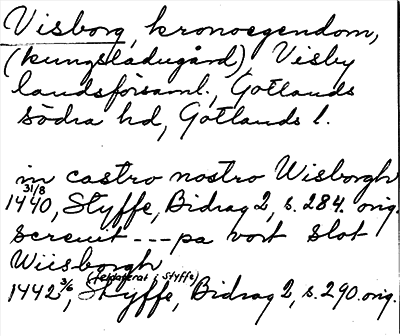 Visborg, kronoegendom,
(kungsladugård) Visby
landsförsaml., Gotlands
södra hd, Gotlands l.
in castro nostro Wisborgh
31/8
1440, Styffe, Bidrag 2, s. 284. orig.
screuit --- pa vort slot
Wiisborgh
(feldaterat i Styffe)
1442 3/6, Styffe, Bidrag 2, s. 290. orig.